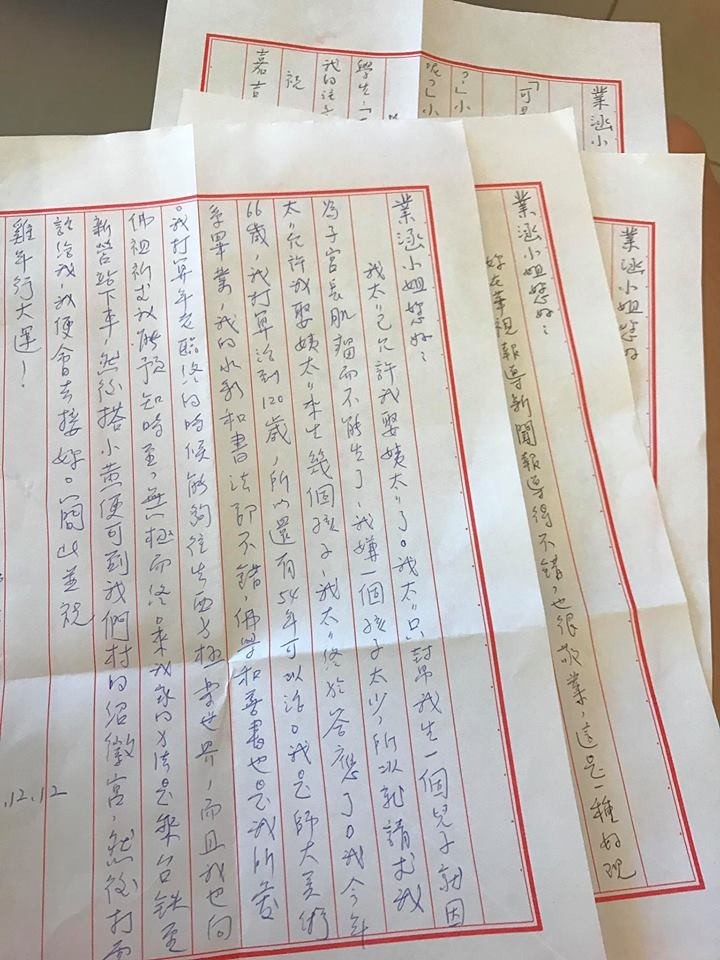 業涵小
「可是
？」小
呢？」小
學生，「
我的法
祝
嘉言
業涵小姐您好
業涵小姐您好：
妳在華視報導新聞報導得不錯，也很敬業，這是一種好現
業涵小姐您好：
我太〃已允許我娶姨太〃了。我太〃只幫我生一個兒子就因
為子宮長肌瘤而不能生了，我嫌一個孩子太少，所以就請求我
太〃允許我娶姨太〃來生幾個孩子，我太〃終於答應了。我今年
66歲，我打算活到120歲，所以還有54年可以活。我是師大美術
系畢業，我的水彩和書法都不錯，佛學和善書也是我所喜
。我打算年老臨終的時候能夠往生西方極樂世界，而且我也向
佛祖祈求我能預知時至，無極而終。來我家的方法是乘台鐵至
新營站下車，然後搭小黃便可到我們村的紹徽宮，然後打電
話給我，我便會去接妳。簡此並祝
雞年行大運！
.12.12